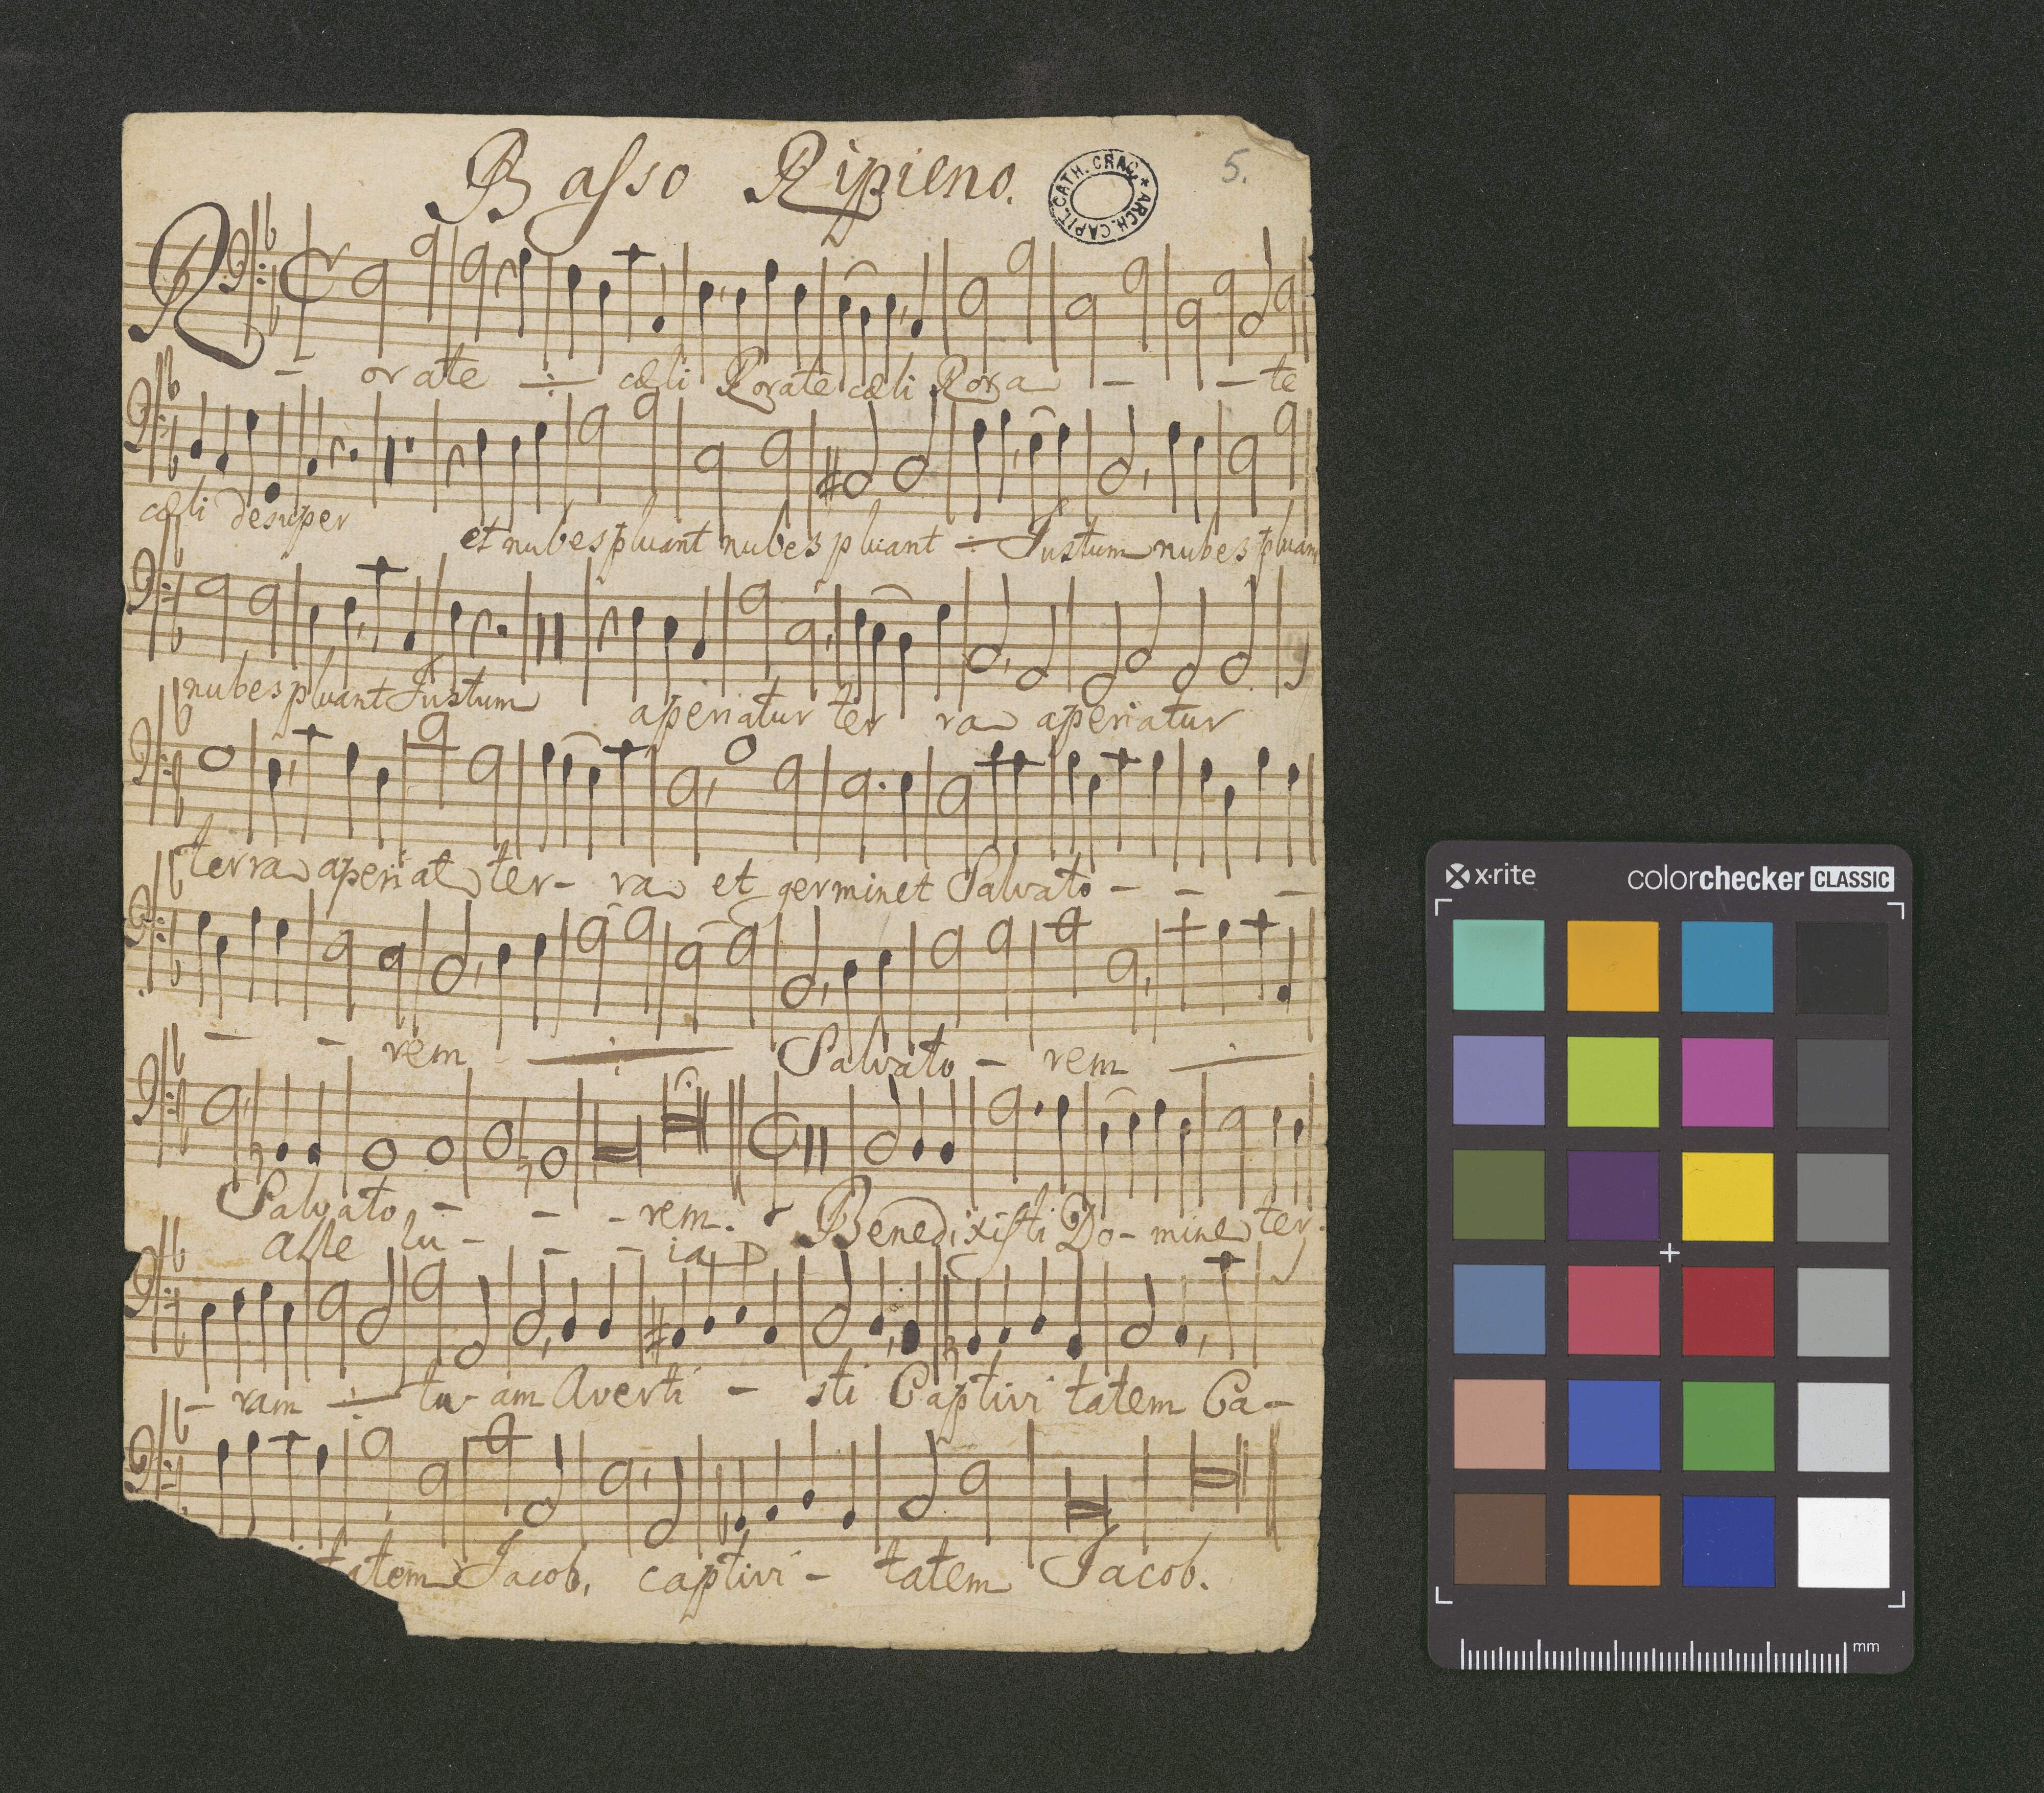 Basso Ripieno.
CATH. CRAC. * ARCH. CAPIT.
5.
Rorate ·/· cæli Rorate cæli Rora - - te
cæli desuper et nubes pluant nubes pluant ·/· Justum nubes pluant
nubes pluant Justum aperiatur ter ra aperiatur
terra aperiat ter- ra et germinet Salvato - - -
- - rem ·/· Salvato - rem ·/·
Salvato - - - rem. Benedixisti Do- mine ter-
alle lu - - - ia
- ram ·/· tu- am Averti - sti Captivi tatem Ca-
tatem Jacob, captivi - tatem Jacob.
x·rite
colorchecker CLASSIC
mm